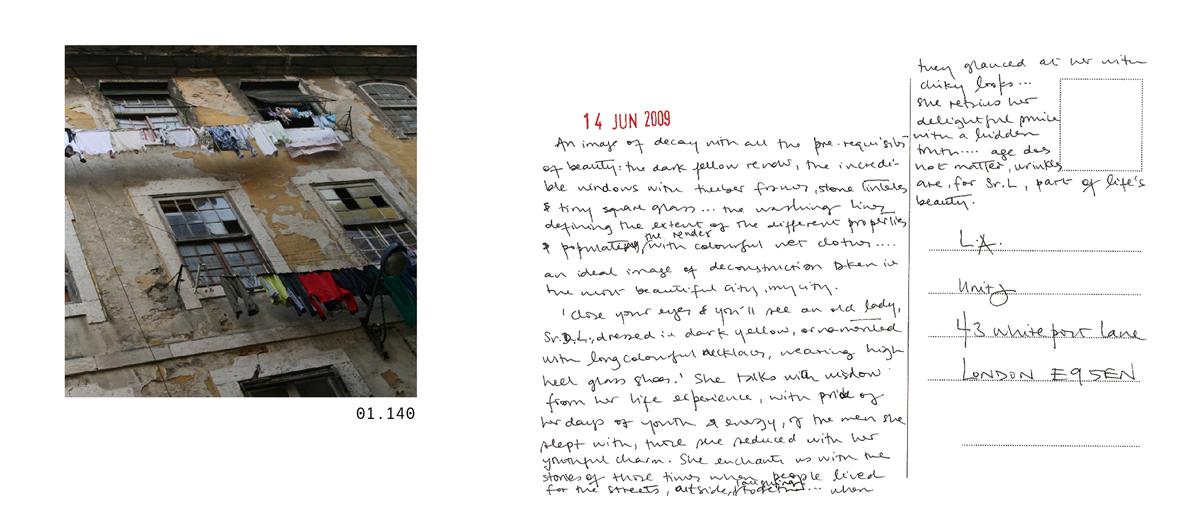 01.140
14 JUN 2009
An image of decay with all the pre-requisits
of beauty: the dark yellow render, the incredi-
ble windows with timber frames, stone lintels
& tiny square glass... the washing lines
defining the extent of the different properties
the render
& populate with colourful wet clothes....
an ideal image of deconstruction taken in
the most beautiful city, my city.
'Close your eyes & you'll see an old lady,
Sr.D.L., dressed in dark yellow, ornamented
with long colourful necklaces, wearing high
heel glass shoes.' She talks with wisdow
from her life experience, with pride of
her days of youth & energy, of the men she
slept with, those she seduced with her
youthful charm. She enchants us with the
stories of those times when people lived
for the streets, outside, together... when
they glanced at her with
chiky looks...
she retains her
delightful smile
with a hidden
truth.... age does
not matter, wrinkles
are, for Sr.L, part of life's
beauty.
L.A.
Unit
43 white post lane
LONDON E9 5EN